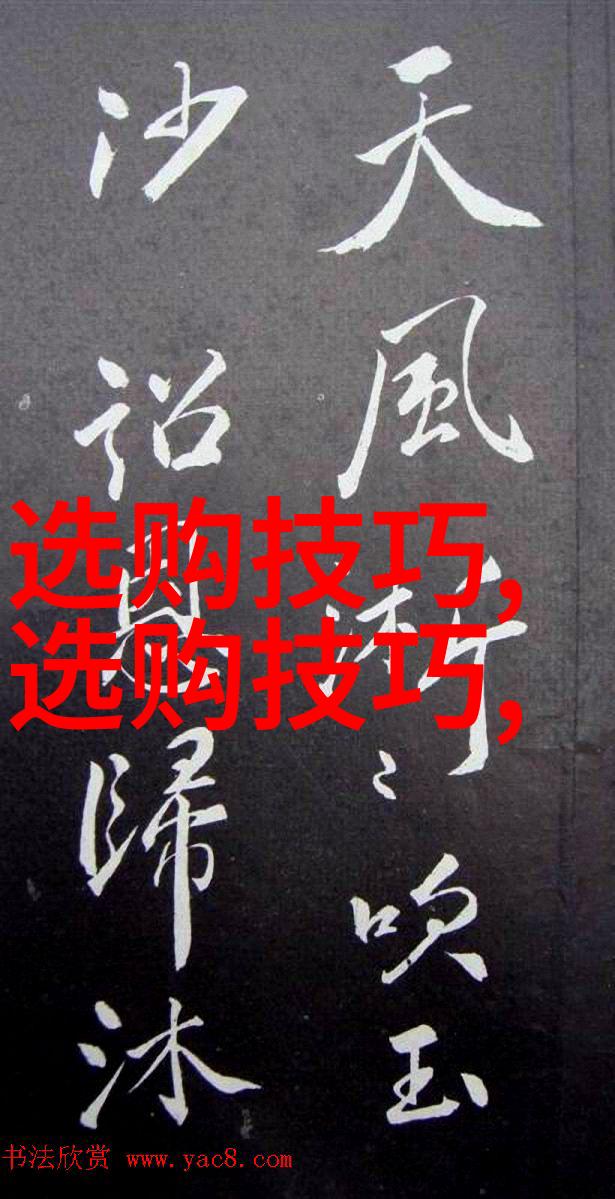 天風淅〻吹玉
沙詔恩歸沐
选购技巧,
选购技巧,
书法欣赏 www.yac8.com